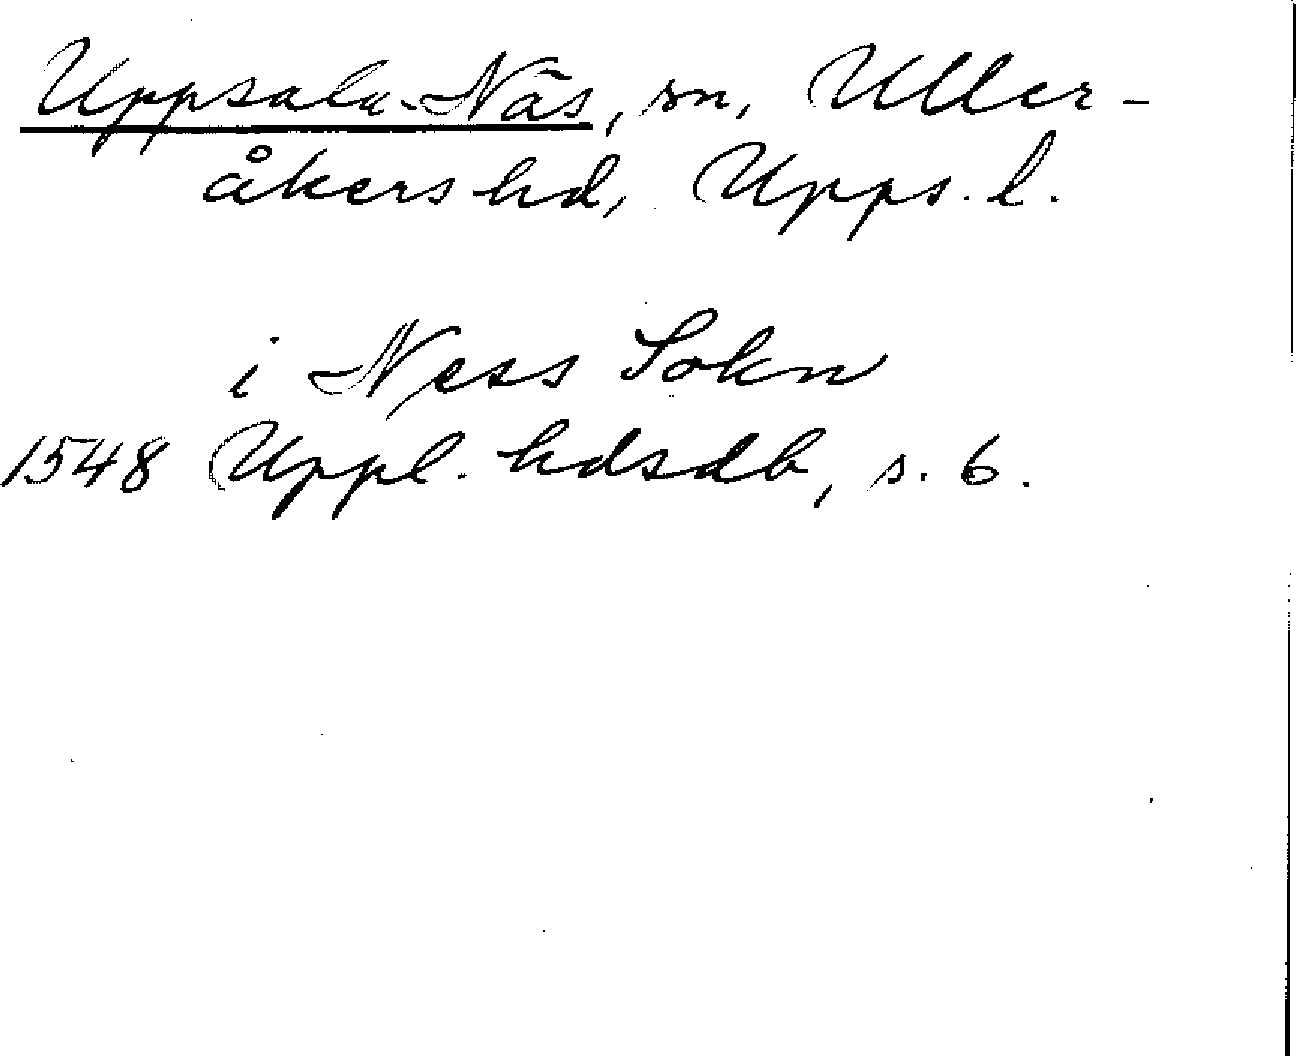 Uppsala-Näs, sn, Uller-
åkers hd, Upps. l.
i Ness Sokn
1548 Uppl. hdsdb, s. 6.